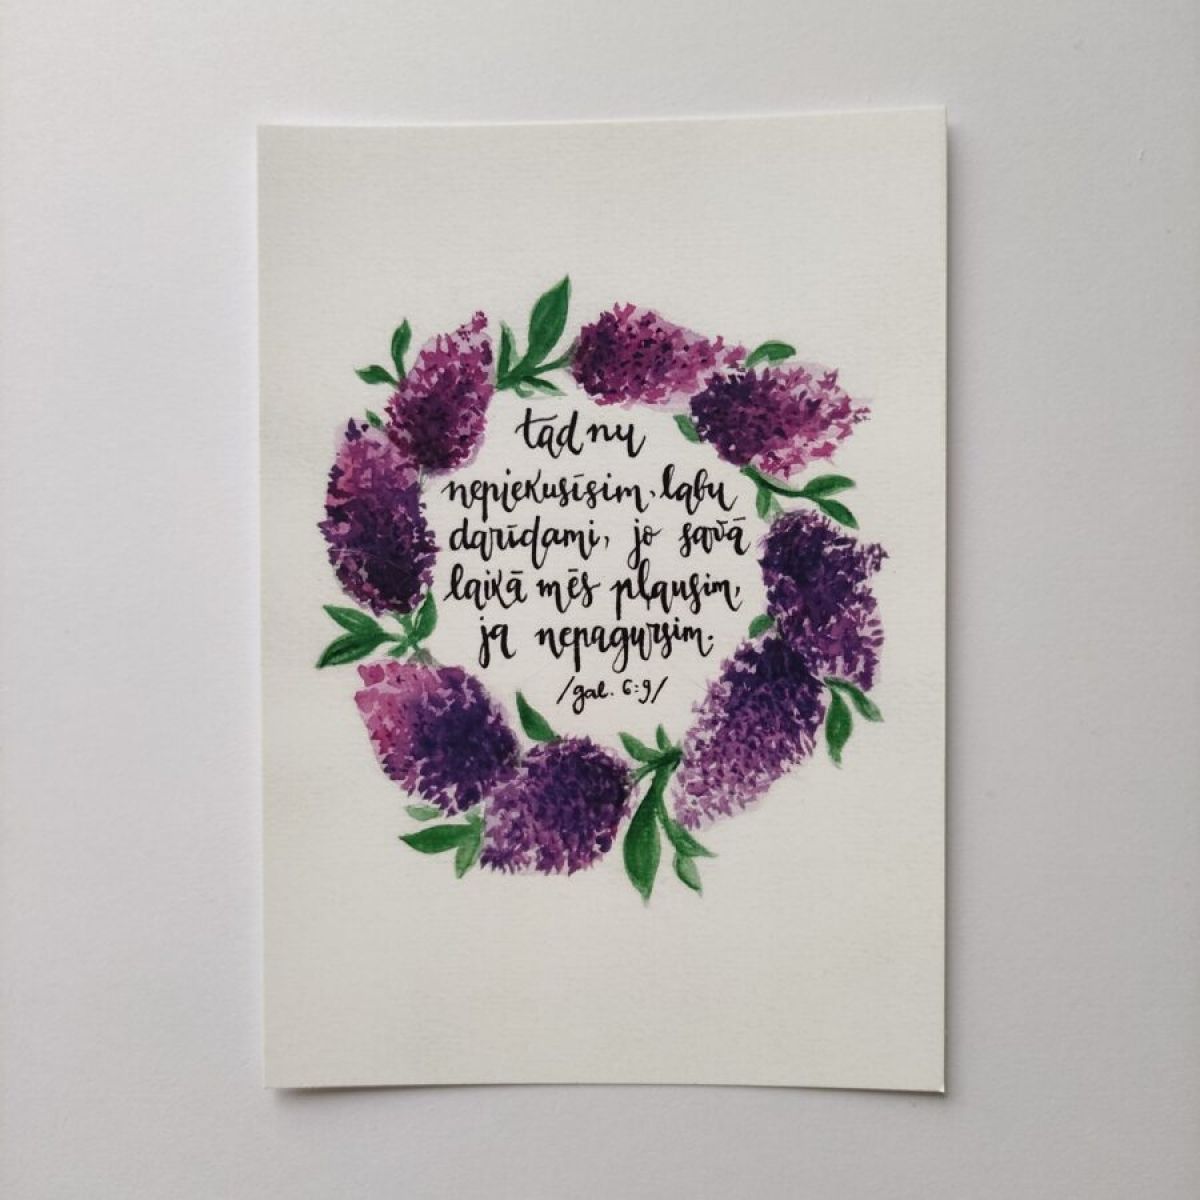 tad nu
nepiekusīsim, labu
darīdami, jo savā
laikā mēs pļausim,
ja nepagursim.
/gal. 6:9/